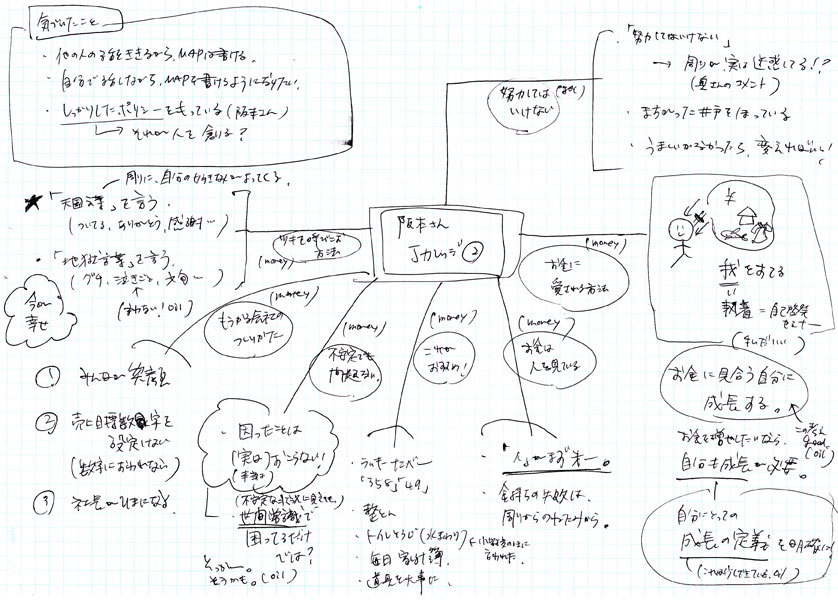 気づいたこと
・他の人の話をききながら、MAPは書ける。
・自分で話しながら、MAPを書けるようになりたい。
・しっかりしたポリシーをもっている(阪本さん)
→それが人を創る?
周りに、自分の好きな人がよってくる。
★・「天国言葉」を言う
(ついてる、ありがとう、感謝…)
・「地獄言葉」を言う
(グチ、泣きごと、文句…)
(言わない! Oil)
今が
幸せ
ツキを呼びこむ
方法
(money)
阪本さん
Jカレッジ②
努力しては
いけない
・「努力してはいけない」
→周りが、実は迷惑してる!?
(奥さんのコメント)
・まちがった井戸をほっている
・うまくいかなかったら、変えればいい!
(money)
お金に
愛される方法
¥
我をすてる
執着=自己啓発
セミナー
お金に見合う自分に
成長する。
お金を増やしたいなら、
自分も成長が必要。
(oil)
自分にとっての
成長の定義を明確に!
(money)
もうかる会社の
つくりかた
① みんなが笑顔
② 売上目標数字を
設定しない
(数字におわれない)
③ 社長がひまになる
(money)
不安定でも
問題ない。
・困ったことは
「実は」おこらない!
・世間常識で
困ってるだけ
では?
そうかも。(oil)
(money)
これが
おすすめ!
・ラッキーナンバー
「358」「49」
・整とん
・トイレそうじ(水まわり)
・毎日家計簿
・道具を大事に
(money)
お金は
人を見ている
・「人」がまず第一。
・金持ちの失敗は、
周りからのねたみから。